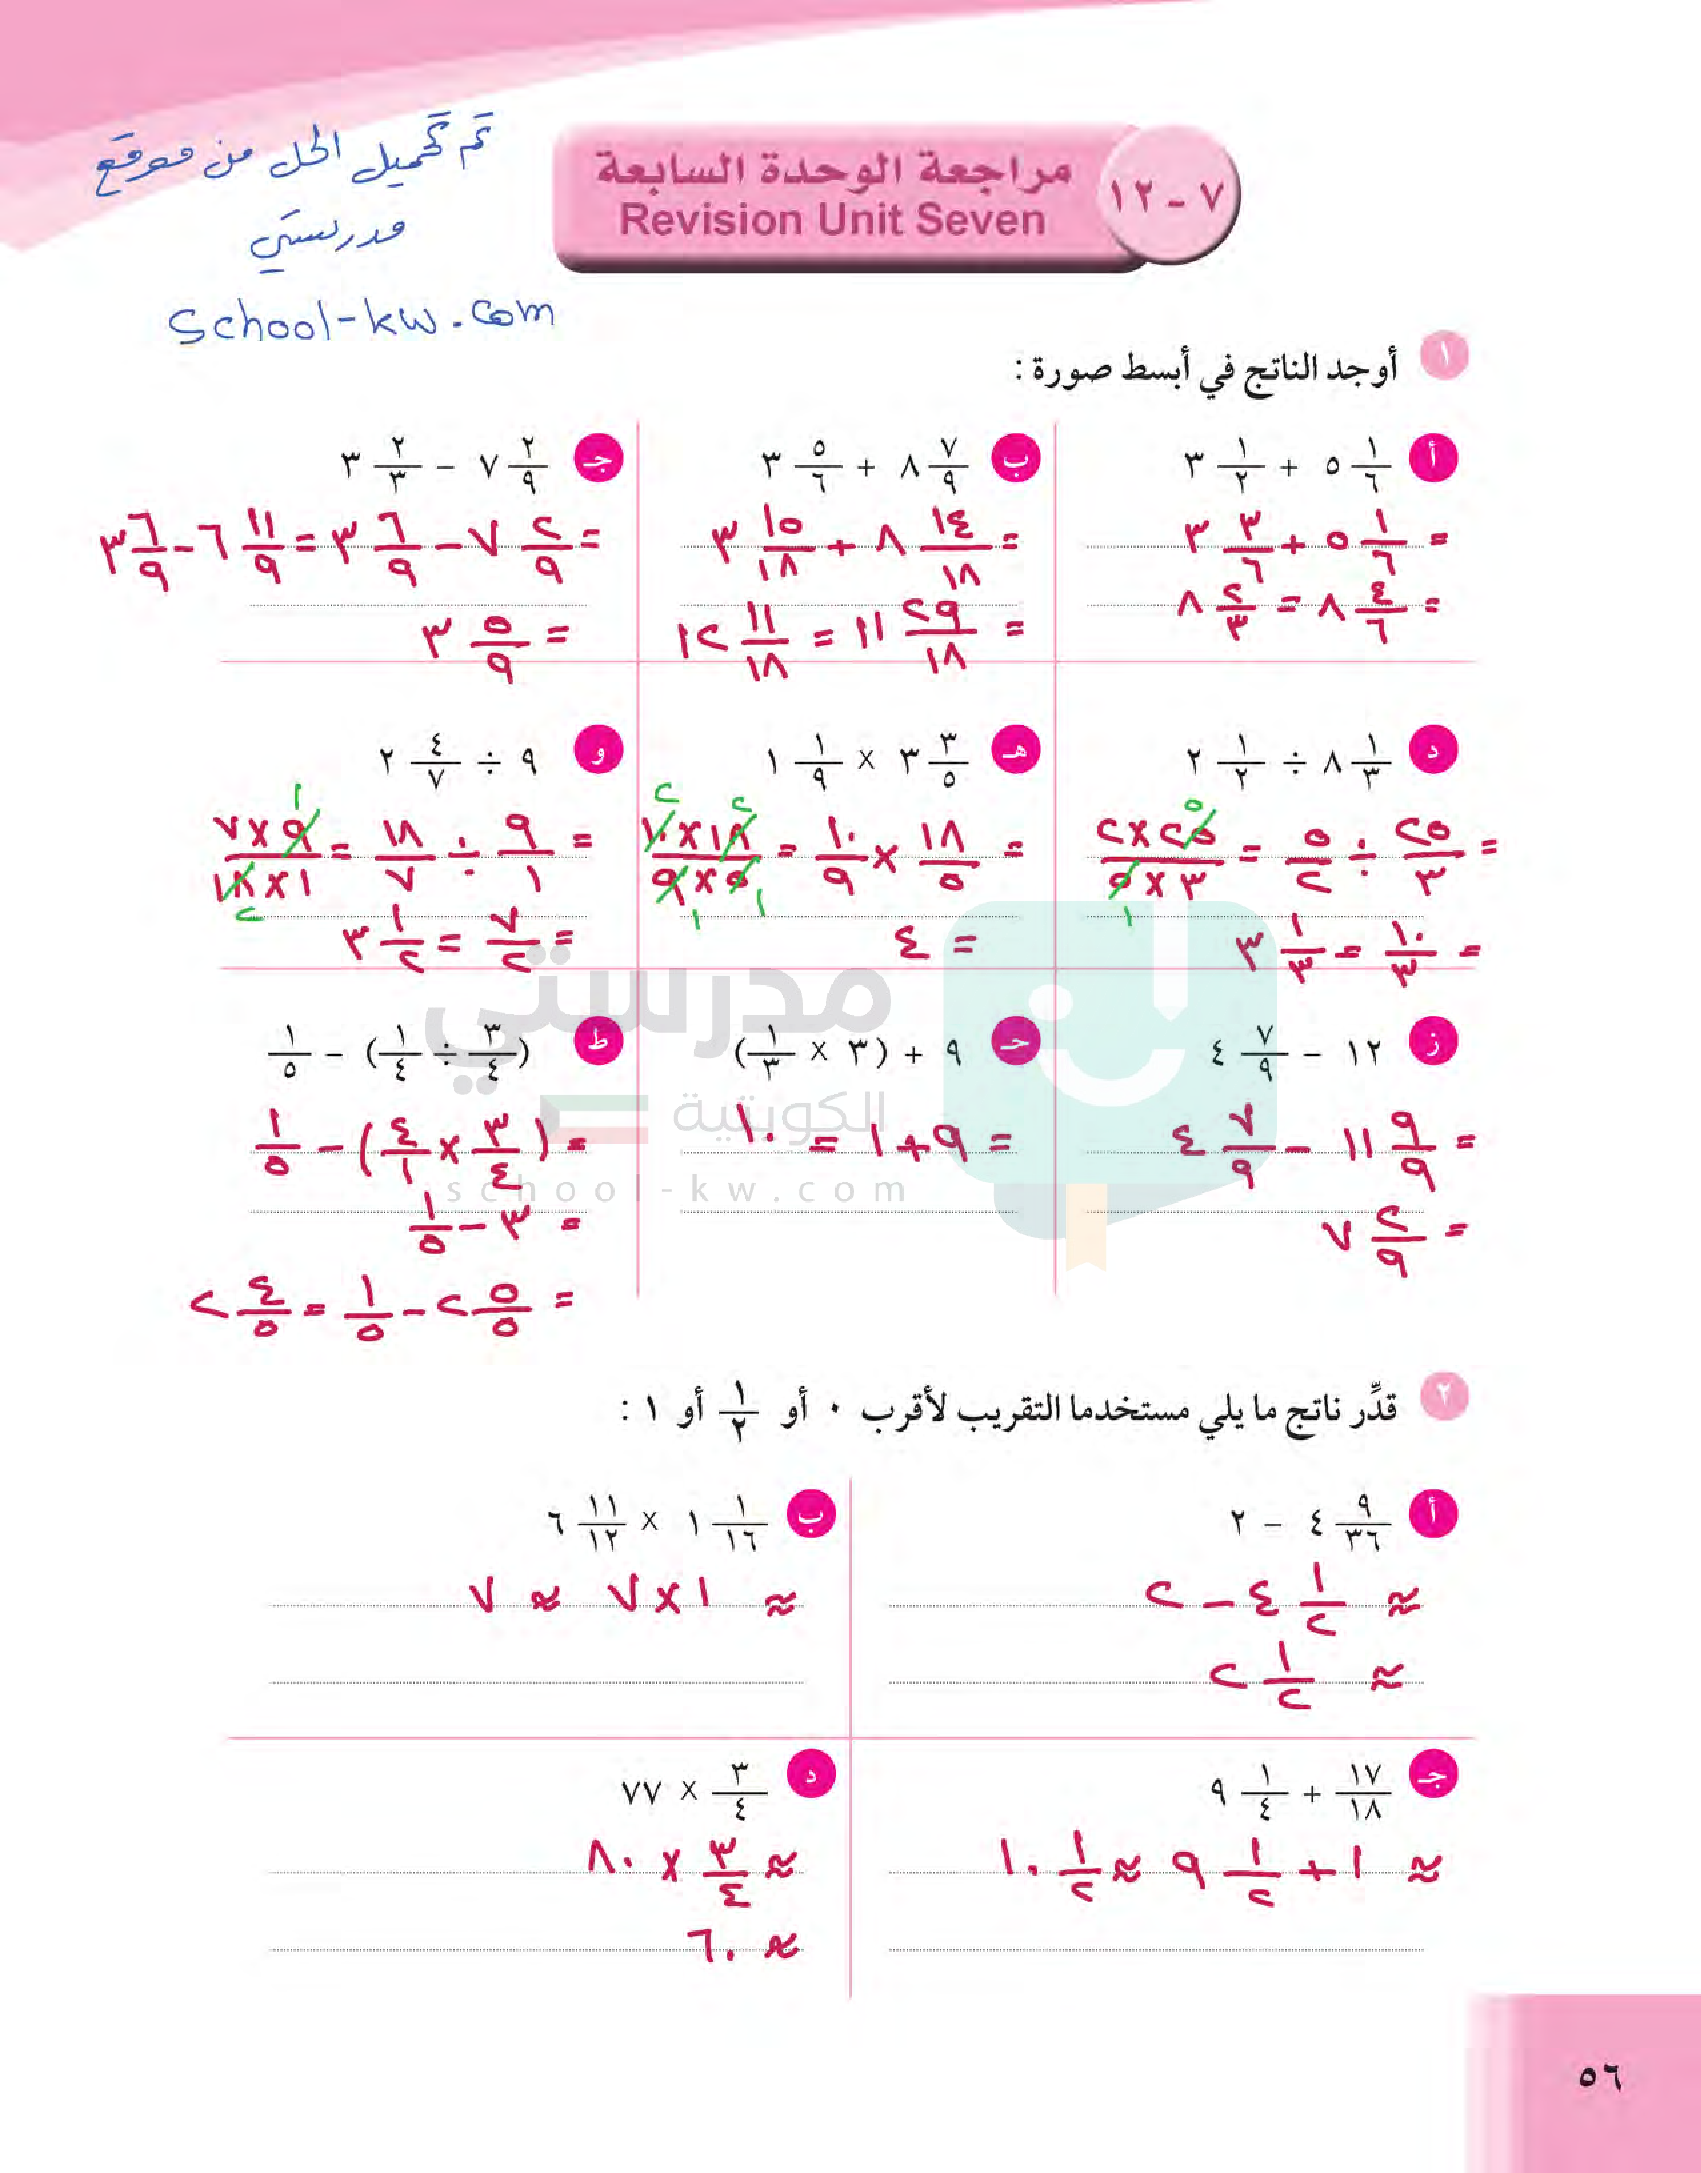 تم تحميل الحل من موقع
مدرستي
school-kw.com
١٢ - ٧
مراجعة الوحدة السابعة
Revision Unit Seven
١ أوجد الناتج في أبسط صورة :
أ ٥ ١/٦ + ٣ ١/٢
= ٥ ١/٦ + ٣ ٣/٦
= ٨ ٤/٦ = ٨ ٢/٣
ب ٨ ٧/٩ + ٣ ٥/٦
= ٨ ١٤/١٨ + ٣ ١٥/١٨
= ١١ ٢٩/١٨ = ١٢ ١١/١٨
جـ ٧ ٢/٩ − ٣ ٢/٣
= ٧ ٢/٩ − ٣ ٦/٩ = ٦ ١١/٩ − ٣ ٦/٩
= ٣ ٥/٩
د ٨ ١/٣ ÷ ٢ ١/٢
= ٢٥/٣ ÷ ٥/٢ = ٢٥×٢/٣×٥ ٥ ١
= ١٠/٣ = ٣ ١/٣
هـ ٣ ٣/٥ × ١ ١/٩
= ١٨/٥ × ١٠/٩ = ١٨×١٠/٥×٩ ٢ ٢ ١ ١
= ٤
و ٩ ÷ ٢ ٤/٧
= ٩/١ ÷ ١٨/٧ = ٩×٧/١×١٨ ١ ٢
= ٧/٢ = ٣ ١/٢
ز ١٢ − ٤ ٧/٩
= ١١ ٩/٩ − ٤ ٧/٩
= ٧ ٢/٩
حـ ٩ + (٣ × ١/٣)
= ٩ + ١ = ١٠
ط (٣/٤ ÷ ١/٤) − ١/٥
= (٣/٤ × ٤/١) − ١/٥
= ٣ − ١/٥
= ٢ ٥/٥ − ١/٥ = ٢ ٤/٥
مدرستي
الكويتية
school-kw.com
٢ قدِّر ناتج ما يلي مستخدما التقريب لأقرب ٠ أو ١/٢ أو ١ :
أ ٤ ٩/٣٦ − ٢
≈ ٤ ١/٢ − ٢
≈ ٢ ١/٢
ب ١ ١/١٦ × ٦ ١١/١٢
≈ ١ × ٧ ≈ ٧
جـ ١٧/١٨ + ٩ ١/٤
≈ ١ + ٩ ١/٢ ≈ ١٠ ١/٢
د ٣/٤ × ٧٧
≈ ٣/٤ × ٨٠
≈ ٦٠
٥٦